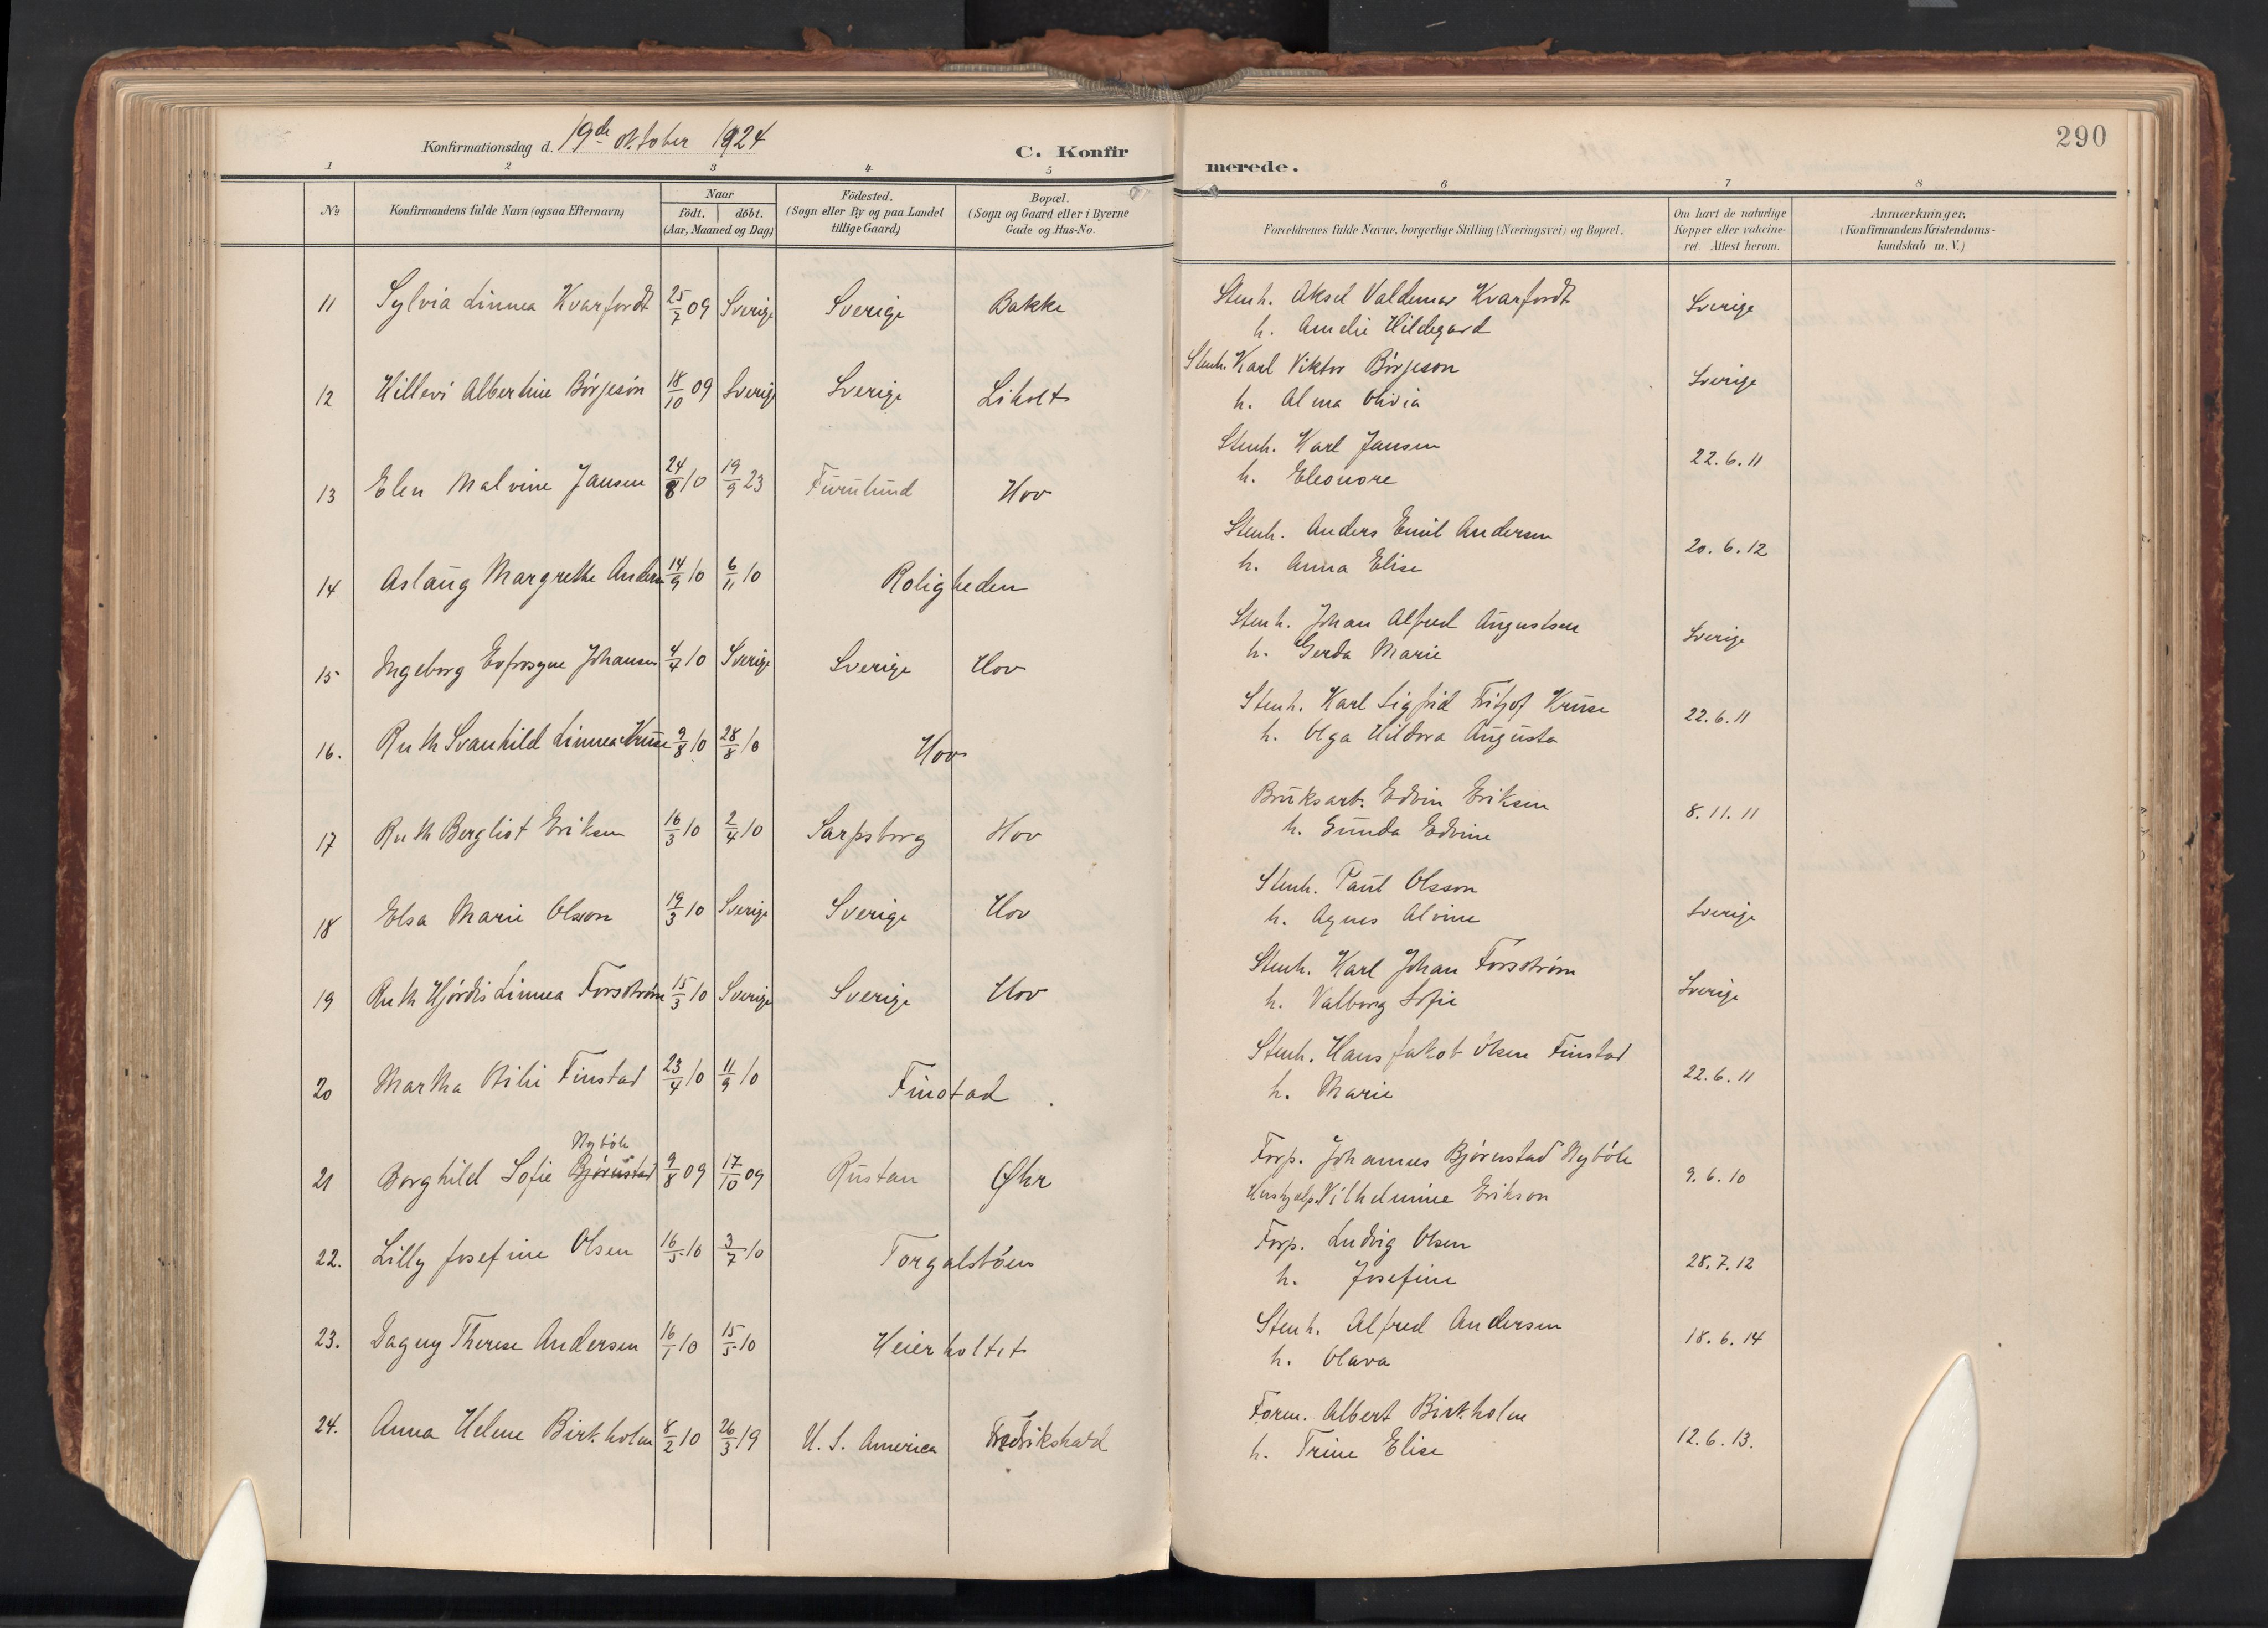 Konfirmationsdag d. 19de Oktober 1924
C. Konfirmerede.
290
1 2 3 4 5 6 7 8
No
Konfirmandens fulde Navn (ogsaa Efternavn)
Naar
födt. döbt.
(Aar, Maaned og Dag)
Födested.
(Sogn eller By og paa Landet
tillige Gaard)
Bopæl.
(Sogn og Gaard eller i Byerne
Gade og Hus-No.
Forældrenes fulde Navne, borgerlige Stilling (Næringsvei) og Bopæl.
Om havt de naturlige
Kopper eller vakcine-
ret. Attest herom.
Anmærkninger.
(Konfirmandens Kristendoms-
kundskab m. V.)
11 Sylvia Linnea Kvarfordt 25/7 09 Sverige Sverige Bakke Stenh. Aksel Valdemar Kvarfordt Sverige
h. Amelie Hildegard
12 Hillevi Albertine Börjesön 18/10 09 Sverige Sverige Liholt Stenh. Karl Viktor Börjeson Sverige
h. Alma Olivia
13 Elen Malvine Jansen 24/8 10 19/9 23 Furulund Hov Stenh. Karl Jansen 22.6.11
h. Eleonore
14 Aslaug Margrethe Andersen 14/9 10 6/11 10 Roligheden Stenh. Anders Emil Andersen 20.6.12
h. Anna Elise
15 Ingeborg Eofrosyne Johansen 4/4 10 Sverige Sverige Hov Stenh. Johan Alfred Augustsen Sverige
h. Gerda Marie
16. Ruth Svanhild Linnea Kruse 9/8 10 28/8 10 Hov Stenh. Karl Sigfrid Fritjof Kruse 22.6.11
h. Olga Hildora Augusta
17 Ruth Bergliot Eriksen 16/3 10 2/4 10 Sarpsborg Hov Bruksarb. Edvin Eriksen 8.11.11
h. Gunda Edvine
18 Elsa Marie Olsson 19/3 10 Sverige Sverige Hov Stenh. Paul Olsson Sverige
h. Agnes Alvine
19 Ruth Hjördis Linnea Forsström 15/3 10 Sverige Sverige Hov Stenh. Karl Johan Forsström Sverige
h. Valborg Sofie
20 Martha Otilie Finstad 23/4 10 11/9 10 Finstad. Stenh. Hans Jakob Olsen Finstad 22.6.11
h. Marie
Nyböle
21 Borghild Sofie Bjørnstad 9/8 09 17/10 09 Rustan Øhr Forp. Johannes Bjørnstad Nyböle 9.6.10
Hushjelp. Vilhelmine Erikson
22. Lilly Josefine Olsen 16/5 10 3/7 10 Torgalsböen Forp. Ludvig Olsen 28.7.12
h. Josefine
23. Dagny Therese Andersen 16/1 10 15/5 10 Heierholtet Stenh. Alfred Andersen 18.6.14
h. Olava
24. Anna Helene Birkholm 8/2 10 26/3 19 U. S. America Fredrikshald Form. Albert Birkholm 12.6.13.
h. Trine Elise